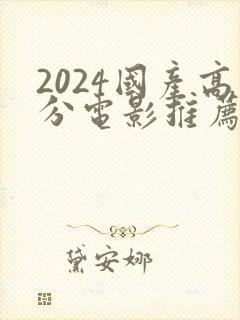 2024國産高
分電影推薦
黛安娜